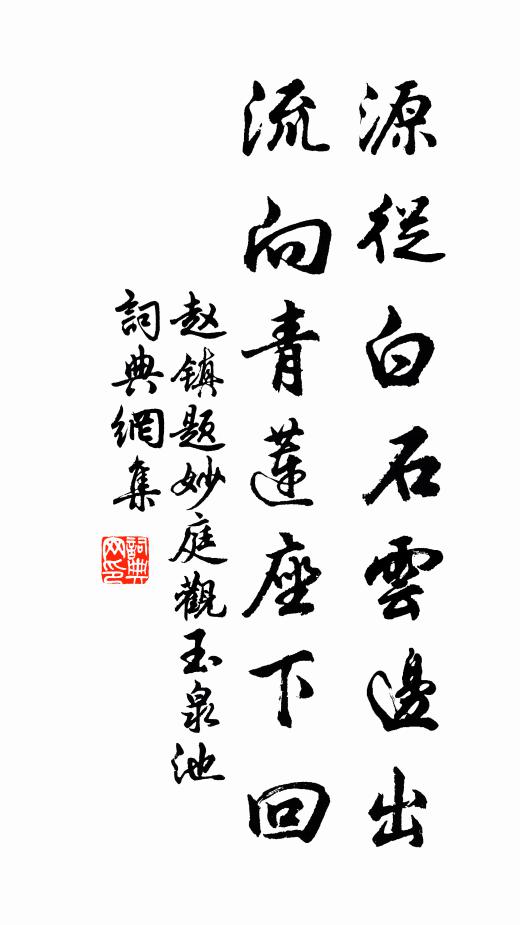 源從白石雲邊出
流向青蓮座下回
赵鎮题妙庭觀玉泉池
詞典網集
詞典网印